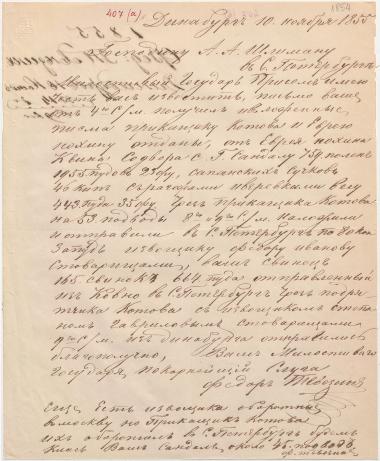 407 (а)
1854
Динабургъ 10. ноября 1855
Господину А. А. Шлиману
в С. Петербургъ
Милостивый Государь Присемъ имею
честь васъ известить, письмо ваше
отъ 4го с/м. получилъ и вложенные
письма прикащику Котова и Еврею
отданы, отъ Еврея
С. Г. Сандалу 759 полен
1955 пудов 25 фу, сапанскихъ Сучковъ
46 кипъ веревками весу
443 пуда 35 фу. Чрезъ прикащика Котова
на 53 подводы 8го и 9го с/м. Наложили
и отправили в С. Петербургъ по
извощику Федору Иванову
Стоварищами, вашъ свинецъ
165 свинокъ 664 пуда отправленный
изъ Ковно в С. Петербургъ Чрезъ подря-
тчика Котова съ извощикомъ Степа-
номъ Гавриловымъ Стоварищами
9го с/м. изъ динабурга отправились
благополучно, Вамъ Милостивый
Государь покорнейшій Слуга
Федоръ
Еще есть извощики оборотные
в москву но Прикащикъ Котова
ихъ оборотилъ в С. Петербургъ будемъ
класть Вашъ Сандалъ около 45 подводъ